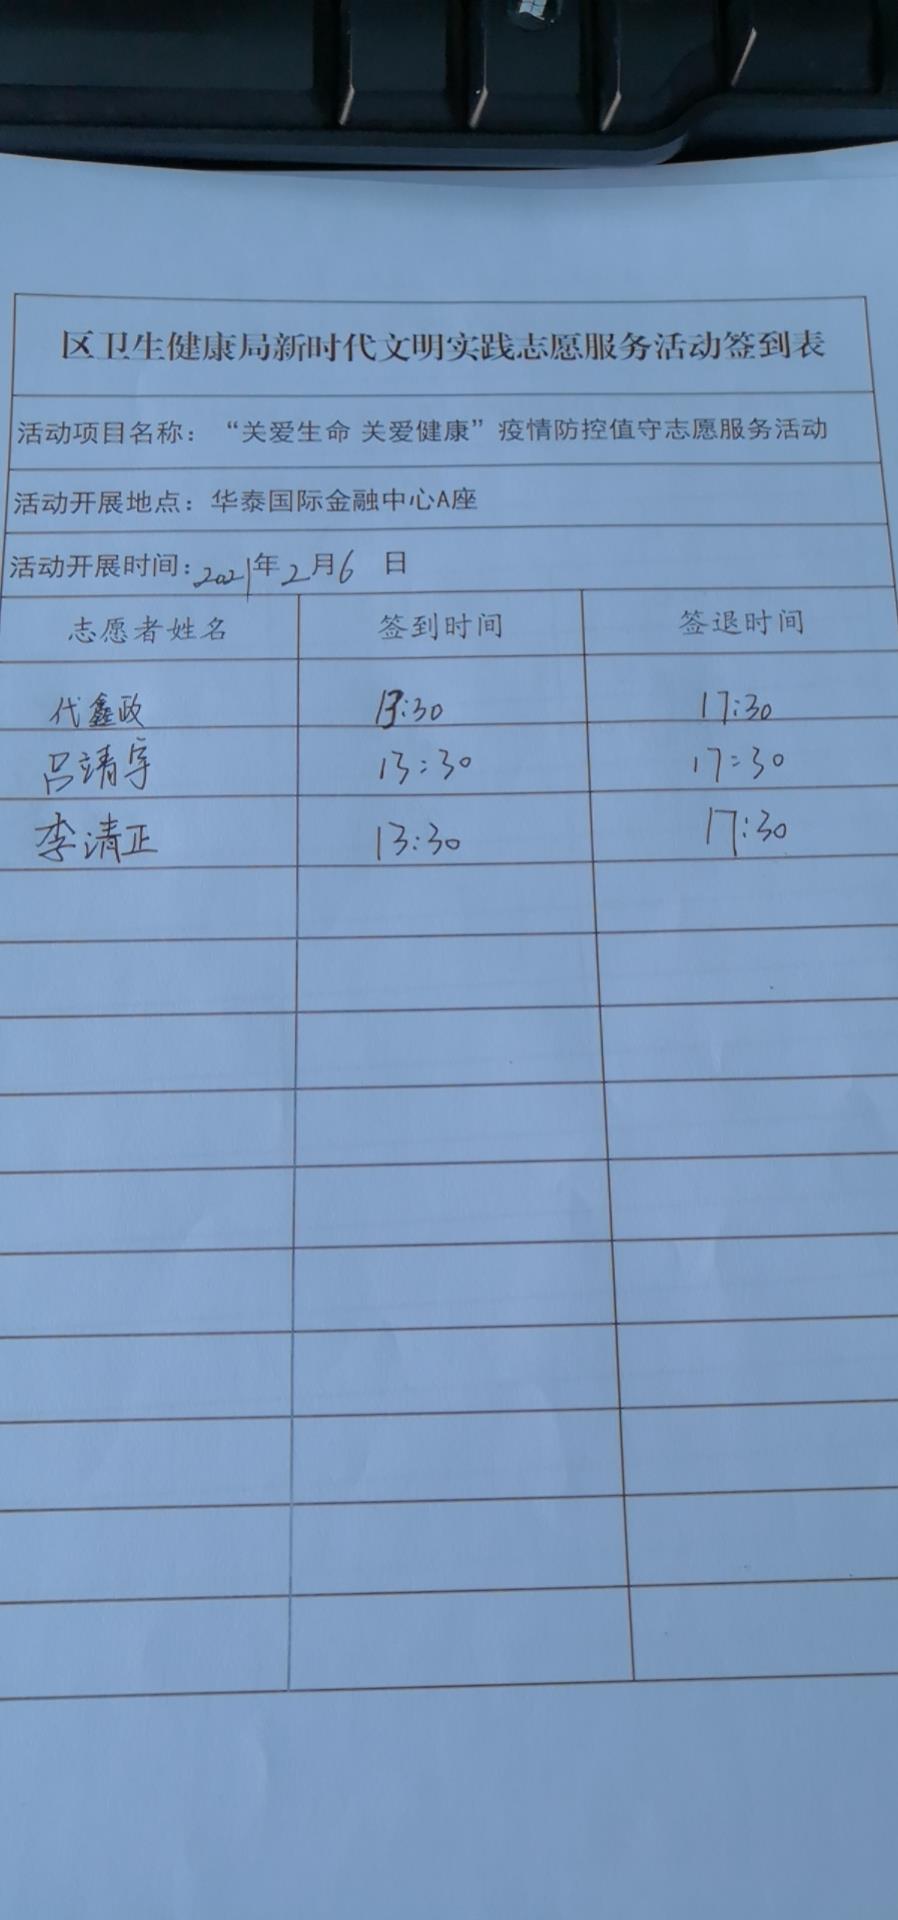 区卫生健康局新时代文明实践志愿服务活动签到表
活动项目名称：“关爱生命 关爱健康”疫情防控值守志愿服务活动
活动开展地点：华泰国际金融中心A座
活动开展时间：2021年2月6 日
志愿者姓名 签到时间 签退时间
代鑫政 13:30 17:30
吕靖宇 13:30 17:30
李清正 13:30 17:30